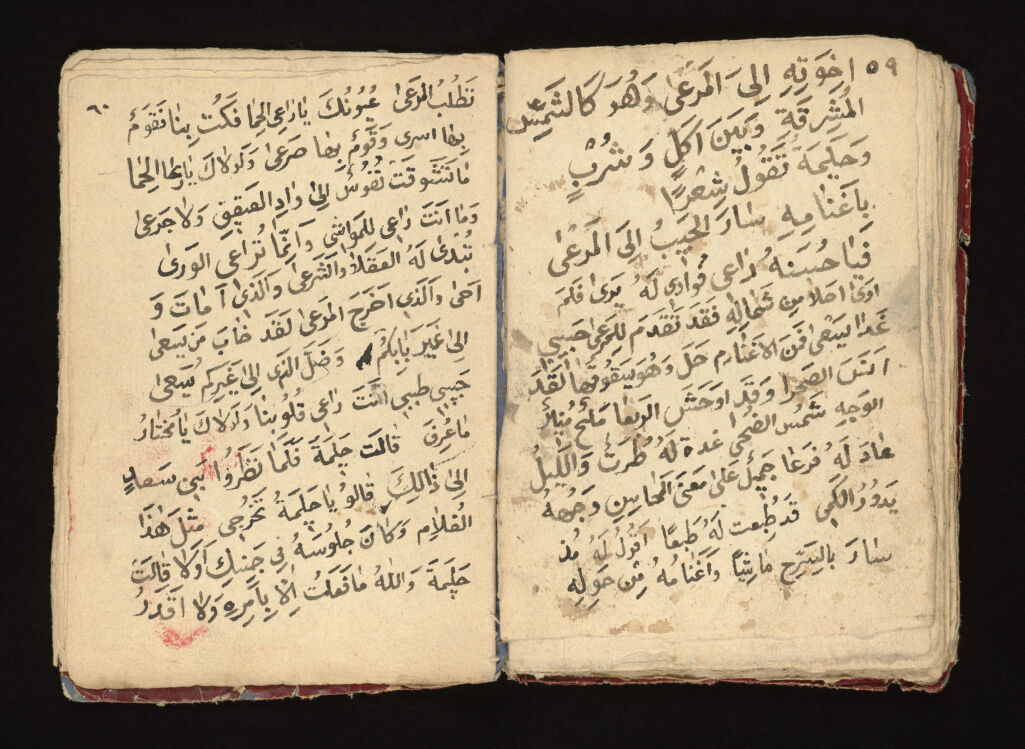 ٥٩
اِخوَتِهِ اِلىَ المَرعىَ وَهُوَ كَالشَمِسِ
المُشرِقَةِ وَبَينَ اكَلٍ وَ شُربٍ
وَحَلَيمَة تَقُولُ شِعرًا
بِاَغنامِهِ سارَ الحَبيبُ اِلىَ المَرعىٰ
فَيا حُسنَهُ راعى فُوادى لَهُ يرعىٰ فَلَم
ارىٰ احلا مِن شَمائِلهِ فَقَد تَقَدمَ للمَرعىٰ حَبيبي
غَدا يَسعىٰ فَن الاَغنام حَل وَهُوَ يسَقُوتَها لَقَد
انَسَ الصَحرا وَقَد اوحَشَ الربعا مَليح مُنيرُ
الوَجهِ شَمسُ الضُحىٰ غدة لَهُ طُرَتُ وَاللَيلُ
عادَ لَهُ فرعا جَميلٌ عَلىٰ معَنىٰ المَحاسِنِ وَجهُهُ
بَدورُ الكمى قَد طُبعت لَهُ طَبعًا اقُولُ لَهُ مُذ
سارَ بِالسَرحِ ماشِيًا وَاَغنامُهُ مِن حَولِهِ
٦٠
تَطلُبُ المرعىٰ عُيُونُكَ ياراعى الحِما فَكَت بِنا فَقَومٌ
بِها اسرى وَقَومٌ بِها صَرعىٰ وَلَولاكَ يارَبها الحِما
ماتَشَوقَت نُفُوسٌ اِلىٰ وادِ العَقيقِ وَلا جَرعىٰ
وَما انَتَ راعى للمَواشى وَاِنَما تُراعى الوَرىٰ
تُبدىٰ لَهُ العَقلاَ وَالشَرعىٰ وَالَذىٰ اَماتَ وَ
احىٰ وَالَذى اَخرَجَ المَرعىٰ لَقَد خابَ مَن يَسعىٰ
اِلىٰ غَيرِ بابِكُم وَضَلَ الَذى اِلىٰ غَيرِكُم يَسعىٰ
حَبيبى طَبيبى انَتَ راعى قُلُوبِنا وَلَولاكَ يا مُختارُ
ماعُرِفَ قالَت حَليمَةَ فَلَما نَظَرُوا بَنى سَعدٍ
اِلىٰ ذالِكَ قالُو يا حَليمَةُ تَخرُجى مثلَ هَذا
الغُلامِ وَكانَ جُلُوسَهُ فى جَنبَكِ اَولا قالَت
حَليمَة وَاللهُ مافَعَلتُ اِلاّ بِاَمرِهِ وَلا اَقدرُ